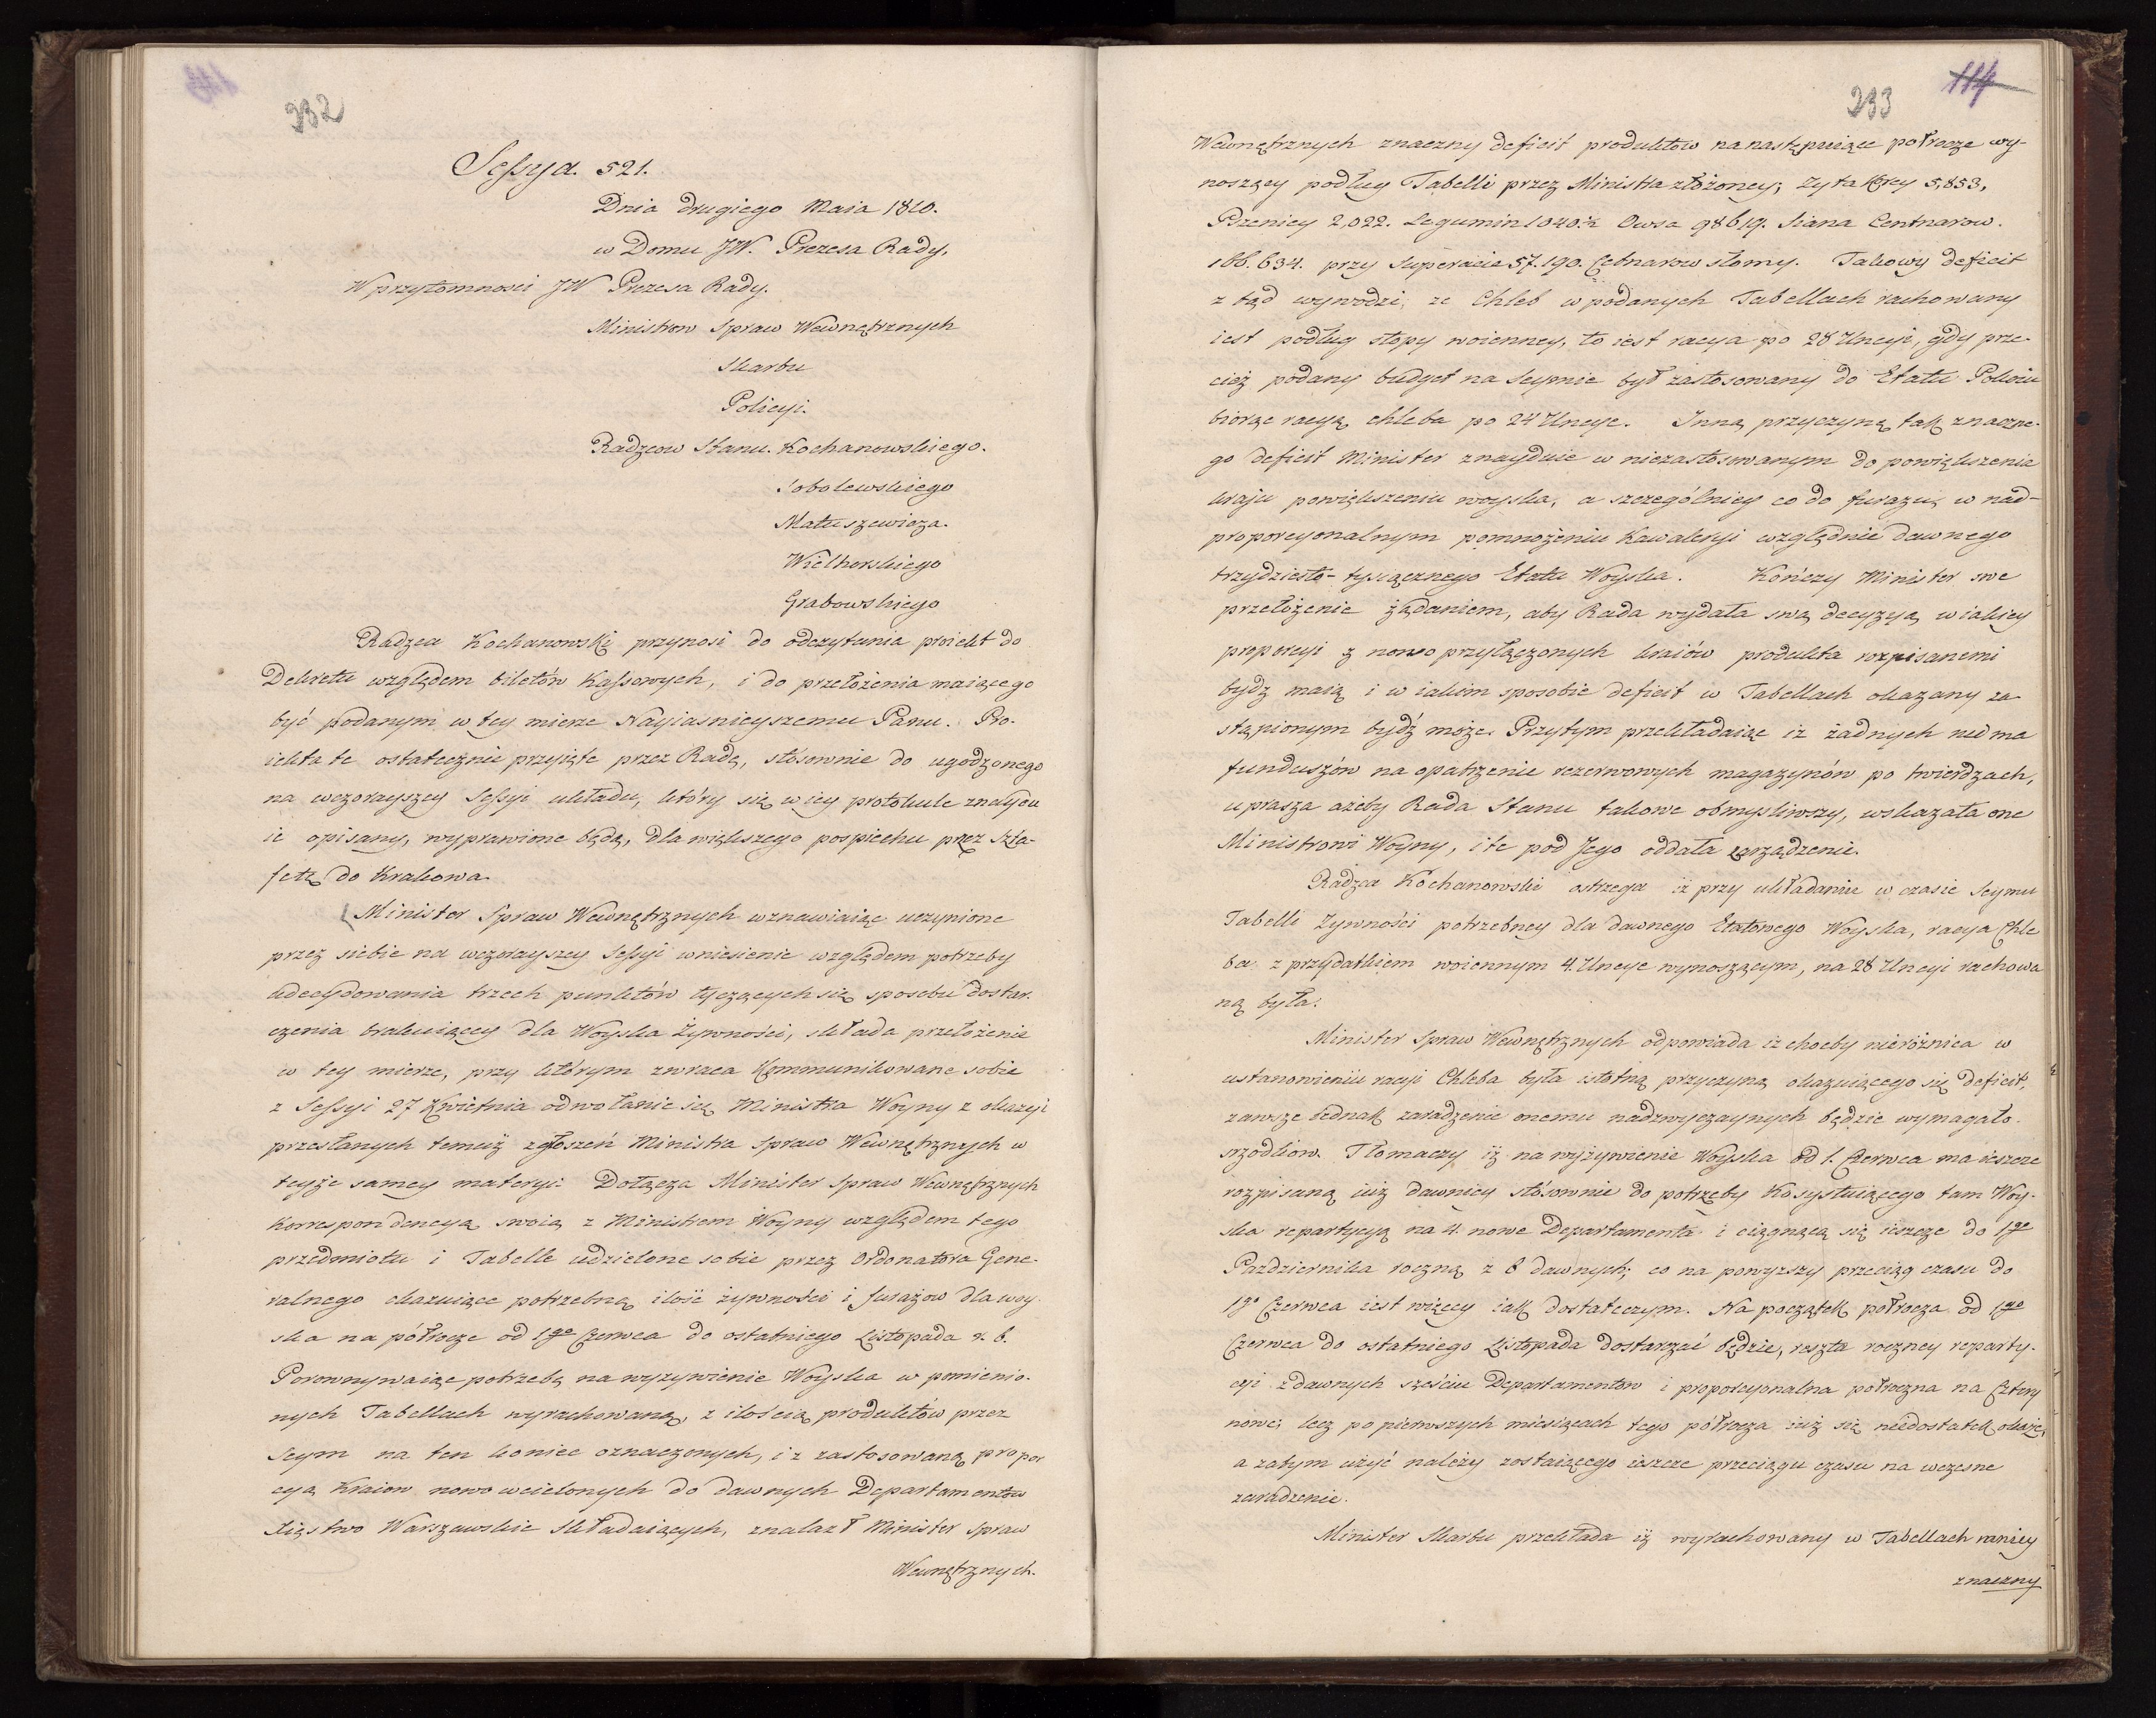 332
Sessya. 521.
Dnia drugiego Maia 1810.
w Domu JW. Prezesa Rady.
W przytomnosci JW Prezesa Rady.
Ministrow Spraw Wewnętrznych
Skarbu
Policyi.
Radzcow Stanu. Kochanowskiego.
Sobolewskiego
Matuszewicza.
Wielhorskiego
Grabowskiego
Radzca Kochanowski przynosi do odczytania proiekt do
Dekretu względem biletów Kassowych, i do przełożenia maiącego
być podanym w tey mierze Nayiasnieyszemu Panu. Pro-
iekta te ostatecznie przyięte przez Radę, stósownie do ugodzonego
na wczorayszey Sessyi układu, który się w iey protokule znaydu
ie opisany, wyprawione będą, dla większego pospiechu przez Szta-
fetę do Krakowa.
Minister Spraw Wewnętrznych wznawiaiąc uczynione
przez siebie na wczorayszey Sessyi wniesienie względem potrzeby
udecydowania trzech punktów tyczących się sposobu dostar-
czenia brakuiącey dla Woyska żywności, składa przełożenie
w tey mierze, przy którym zwraca Kommunikowane sobie
z Sessyi 27 Kwietnia odwołanie się Ministra Woyny z okazyi
przesłanych temuż zgłoszeń Ministra Spraw Wewnętrznych w
teyże samey materyi: Dołącza Minister Spraw Wewnętrznych
Korrespondencyą swoią z Ministrem Woyny względem tego
przedmiotu i Tabelle udzielone sobie przez Ordonatora Gene-
ralnego okazuiące potrzebną ilość żywności i furażow dla woy
ska na półrocze od 1go Czerwca do ostatniego Listopada r. b.
Porownywaiąc potrzebę na wyzywienie Woyska w pomienio-
nych Tabellach wyrachowaną, z ilością produktów przez
Seym na ten koniec oznaczonych, i z zastosowaną propor
cyą Kraiow nowo wcielonych do dawnych Departamentow
Xięstwo Warszawskie składaiących, znalazł Minister Spraw
Wewnętrznych.
333
114
Wewnętrznych znaczny deficit produktow na następuiące połrocze wy-
noszący podług Tabelli przez Ministra złożoney; Zyta Korcy 5,853,
Pszenicy 2,022. Legumin 1040.½ Owsa 98619. Siana Centnarow.
166.634. przy Superacie 57.190. Cetnarow słomy. Takowy deficit
z tąd wywodzi, ze Chleb w podanych Tabellach rachowany
iest podług stopy woienney, to iest racya po 28 Uncyi, gdy prze-
cież podany budget na Seymie był zastosowany do Etatu Pokoiu
biorąc racyą chleba po 24 Uncye. Inną przyczynę tak znaczne-
go deficit Minister znayduie w niezastosowanym do powiększenia
kraju powiększeniu woyska, a szczególniey co do furazu, w nad-
proporcyonalnym pomnożeniu Kawaleryi względnie dawnego
trzydziesto-tysiącznego Etatu Woyska. Kończy Minister swe
przełożenie żądaniem, aby Rada wydała swą decyzyą w iakiey
proporcyi z nowo przyłączonych kraiów produkta rozpisanemi
bydz maią i w iakim sposobie deficit w Tabellach okazany za
stąpionym bydź może. Przytym przekładaiąc iz żadnych nie ma
funduszów na opatrzenie rezerwowych magazynów po twierdzach,
uprasza ażeby Rada Stanu takowe obmysliwszy, wskazała one
Ministrowi Woyny, i te pod Jego oddała zarządzenie.
Radzca Kochanowski ostrzega iż przy układaniu w czasie Seymu
Tabelli Zywności potrzebney dla dawnego Etatowego Woyska, racya Chle
ba z przydatkiem woiennym 4. Uncye wynoszącym, na 28 Uncyi rachowa
ną była.
Minister Spraw Wewnętrznych odpowiada iz choćby nie różnica w
ustanowieniu racyi Chleba była istotną przyczyną okazuiącego się deficit,
zawsze iednak zaradzenie onemu nadzwyczaynych będzie wymagało
srzodkow. Tłomaczy iż na wyżywienie Woyska od 1. Czerwca ma ieszcze
rozpisaną iuż dawniey stósownie do potrzeby Kosystuiącego tam Woy-
ska repartycyą na 4. nowe Departamenta i ciągnącą się ieszcze do 1go
Pazdziernika roczną z 6 dawnych; co na powyzszy przeciąg czasu do
1go Czerwca iest więcey iak dostateczym. Na początek połrocza od 1go
Czerwca do ostatniego Listopada dostarzać będzie, reszta roczney reparty-
cyi z dawnych sześciu Departamentow i proporcyonalna połroczna na Cztery
nowe; lecz po pierwszych miesiącach tego półrocza iuż się niedostatek okaże,
a zatym użyć należy zostaiącego ieszcze przeciągu czasu na wczesne
zaradzenie.
Minister Skarbu przekłada iż wyrachowany w Tabellach raniey
znaczny